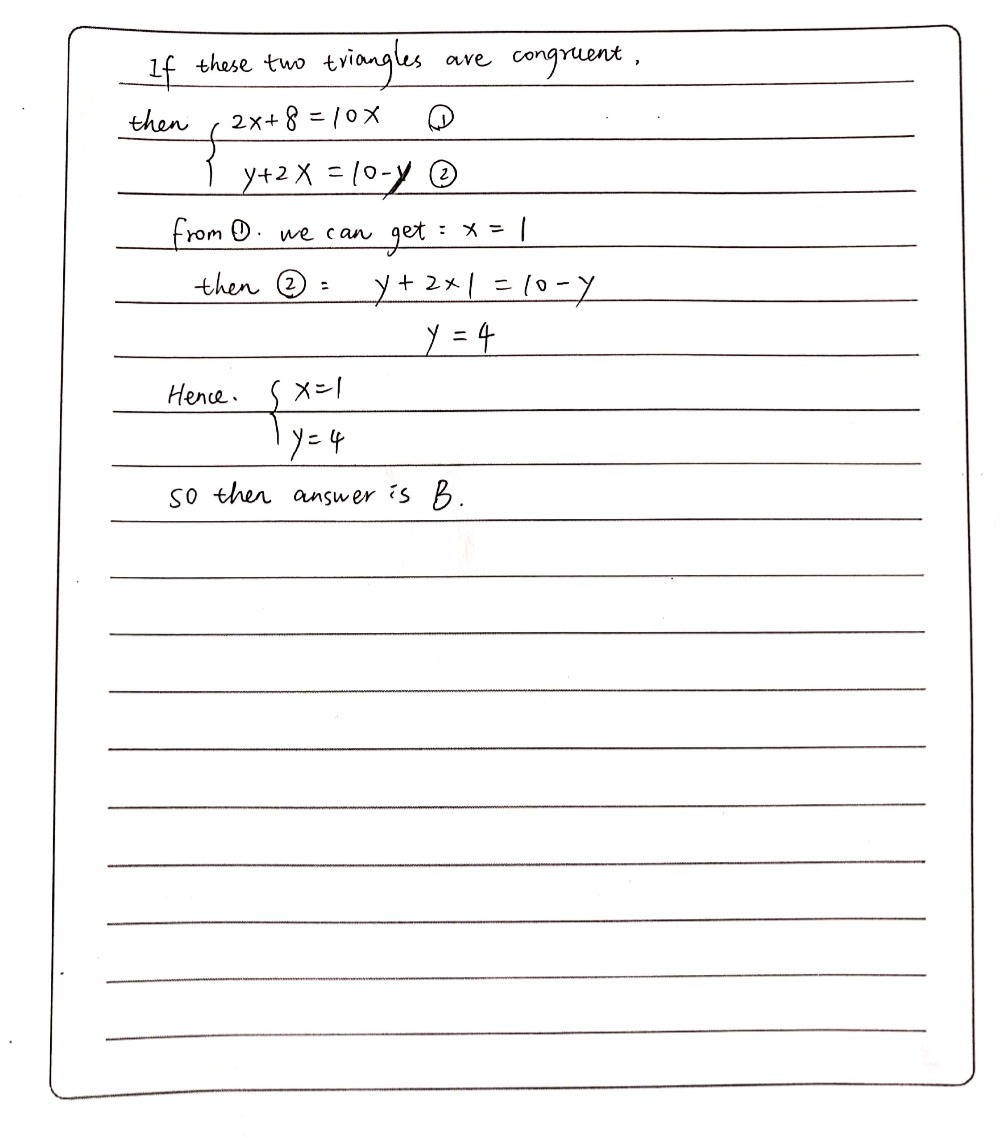 If these two triangles are congruent,
then { 2x+8=10x ①
y+2x=10-y ②
from ①. we can get: x=1
then ②: y+2×1=10-y
y=4
Hence. { x=1
y=4
so then answer is B.